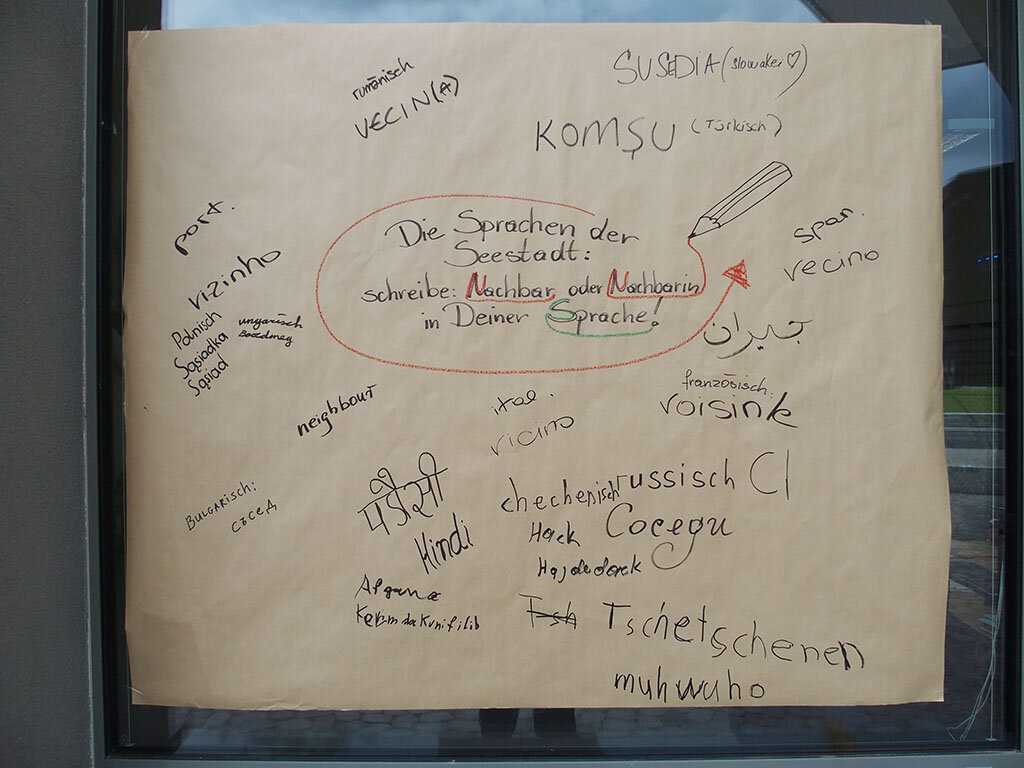 SUSEDIA (slowakei ♡)
rumänisch
VECIN(A)
KOMŞU (Türkisch)
Die Sprachen der
Seestadt:
schreibe: Nachbar oder Nachbarin
in Deiner Sprache!
port.
vizinho
span.
vecino
Polnisch
Sąsiadka
Sąsiad
ungarisch
جيران
französisch.
voisink
neighbour
ital.
vicino
पड़ौसी
Hindi
chechenisch
russisch CI
Hack
Cocegu
BULGARISCH:
съсед
Tsh Tschetschenen
muhwuho